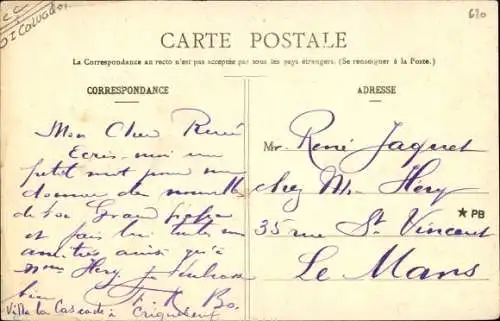 CALVADOS
620
CARTE POSTALE
La Correspondance au recto n'est pas acceptée par tous les pays étrangers. (Se renseigner à la Poste.)
CORRESPONDANCE
Mon Cher René
Ecris-moi un
petit mot pour me
donner des nouvelles
de ton Grand
et fais lui toutes nos
amitiés ainsi qu'à
Hery je t'embrasse
bien
Villa la Cascade à Criquebeuf
ADRESSE
Mr René Jaquet
chez Mr Hery
35 rue St Vincent
Le Mans
★PB